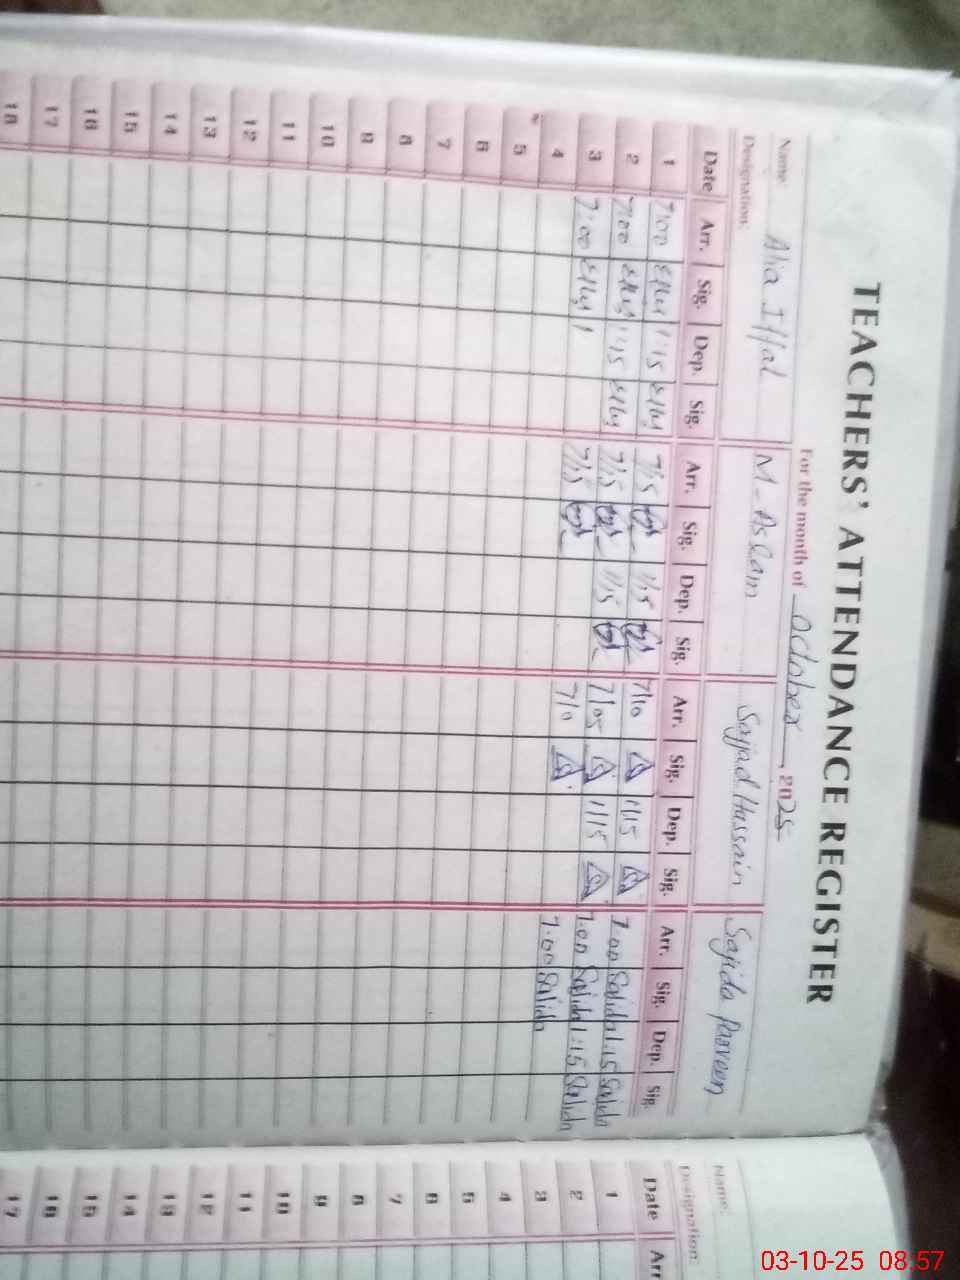 TEACHERS' ATTENDANCE REGISTER
For the month of October 2025
Name: M-Aslam Sajjad Hussain Sajida Parveen
Designation:
Date Arr. Sig. Dep. Sig. Arr. Sig. Dep. Sig. Arr. Sig. Dep. Sig. Arr. Sig. Dep. Sig.
1 7:00 1:15 7/15 1/15 7/10 1/15 7.00 Sajida 1:15 Sajida
2 7:00 1:15 7/15 1/15 7/05 1/15 7.00 Sajida 1:15 Sajida
3 7:00 7/15 7/10 7.00 Sajida
4
5
6
7
8
9
10
11
12
13
14
15
16
17
18
Name:
Designation:
Date Arr
1
2
3
4
5
6
7
8
9
10
11
12
13
14
15
16
17
03-10-25 08.57